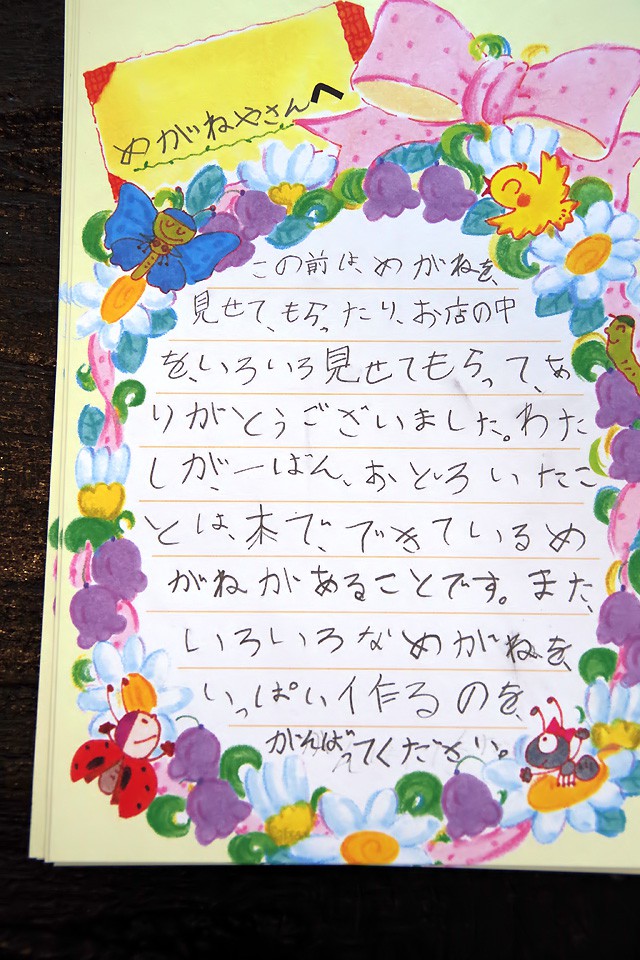 めがねやさんへ
この前は、めがねを、
見せて、もらったり、お店の中
を、いろいろ見せてもらって、あ
りがとうございました。わた
しが、一ばん、おどろいたこ
とは、木で、できているめ
がねがあることです。また、
いろいろなめがねを、
いっぱい作るのを、
がんばってください。